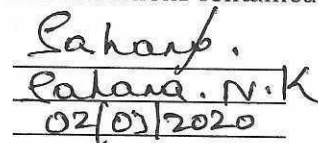 Sahana.
Sahana. N.K
02/03/2020